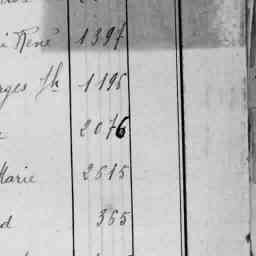 René 1397
rges Jh 1195
2076
Marie 2615
d 365